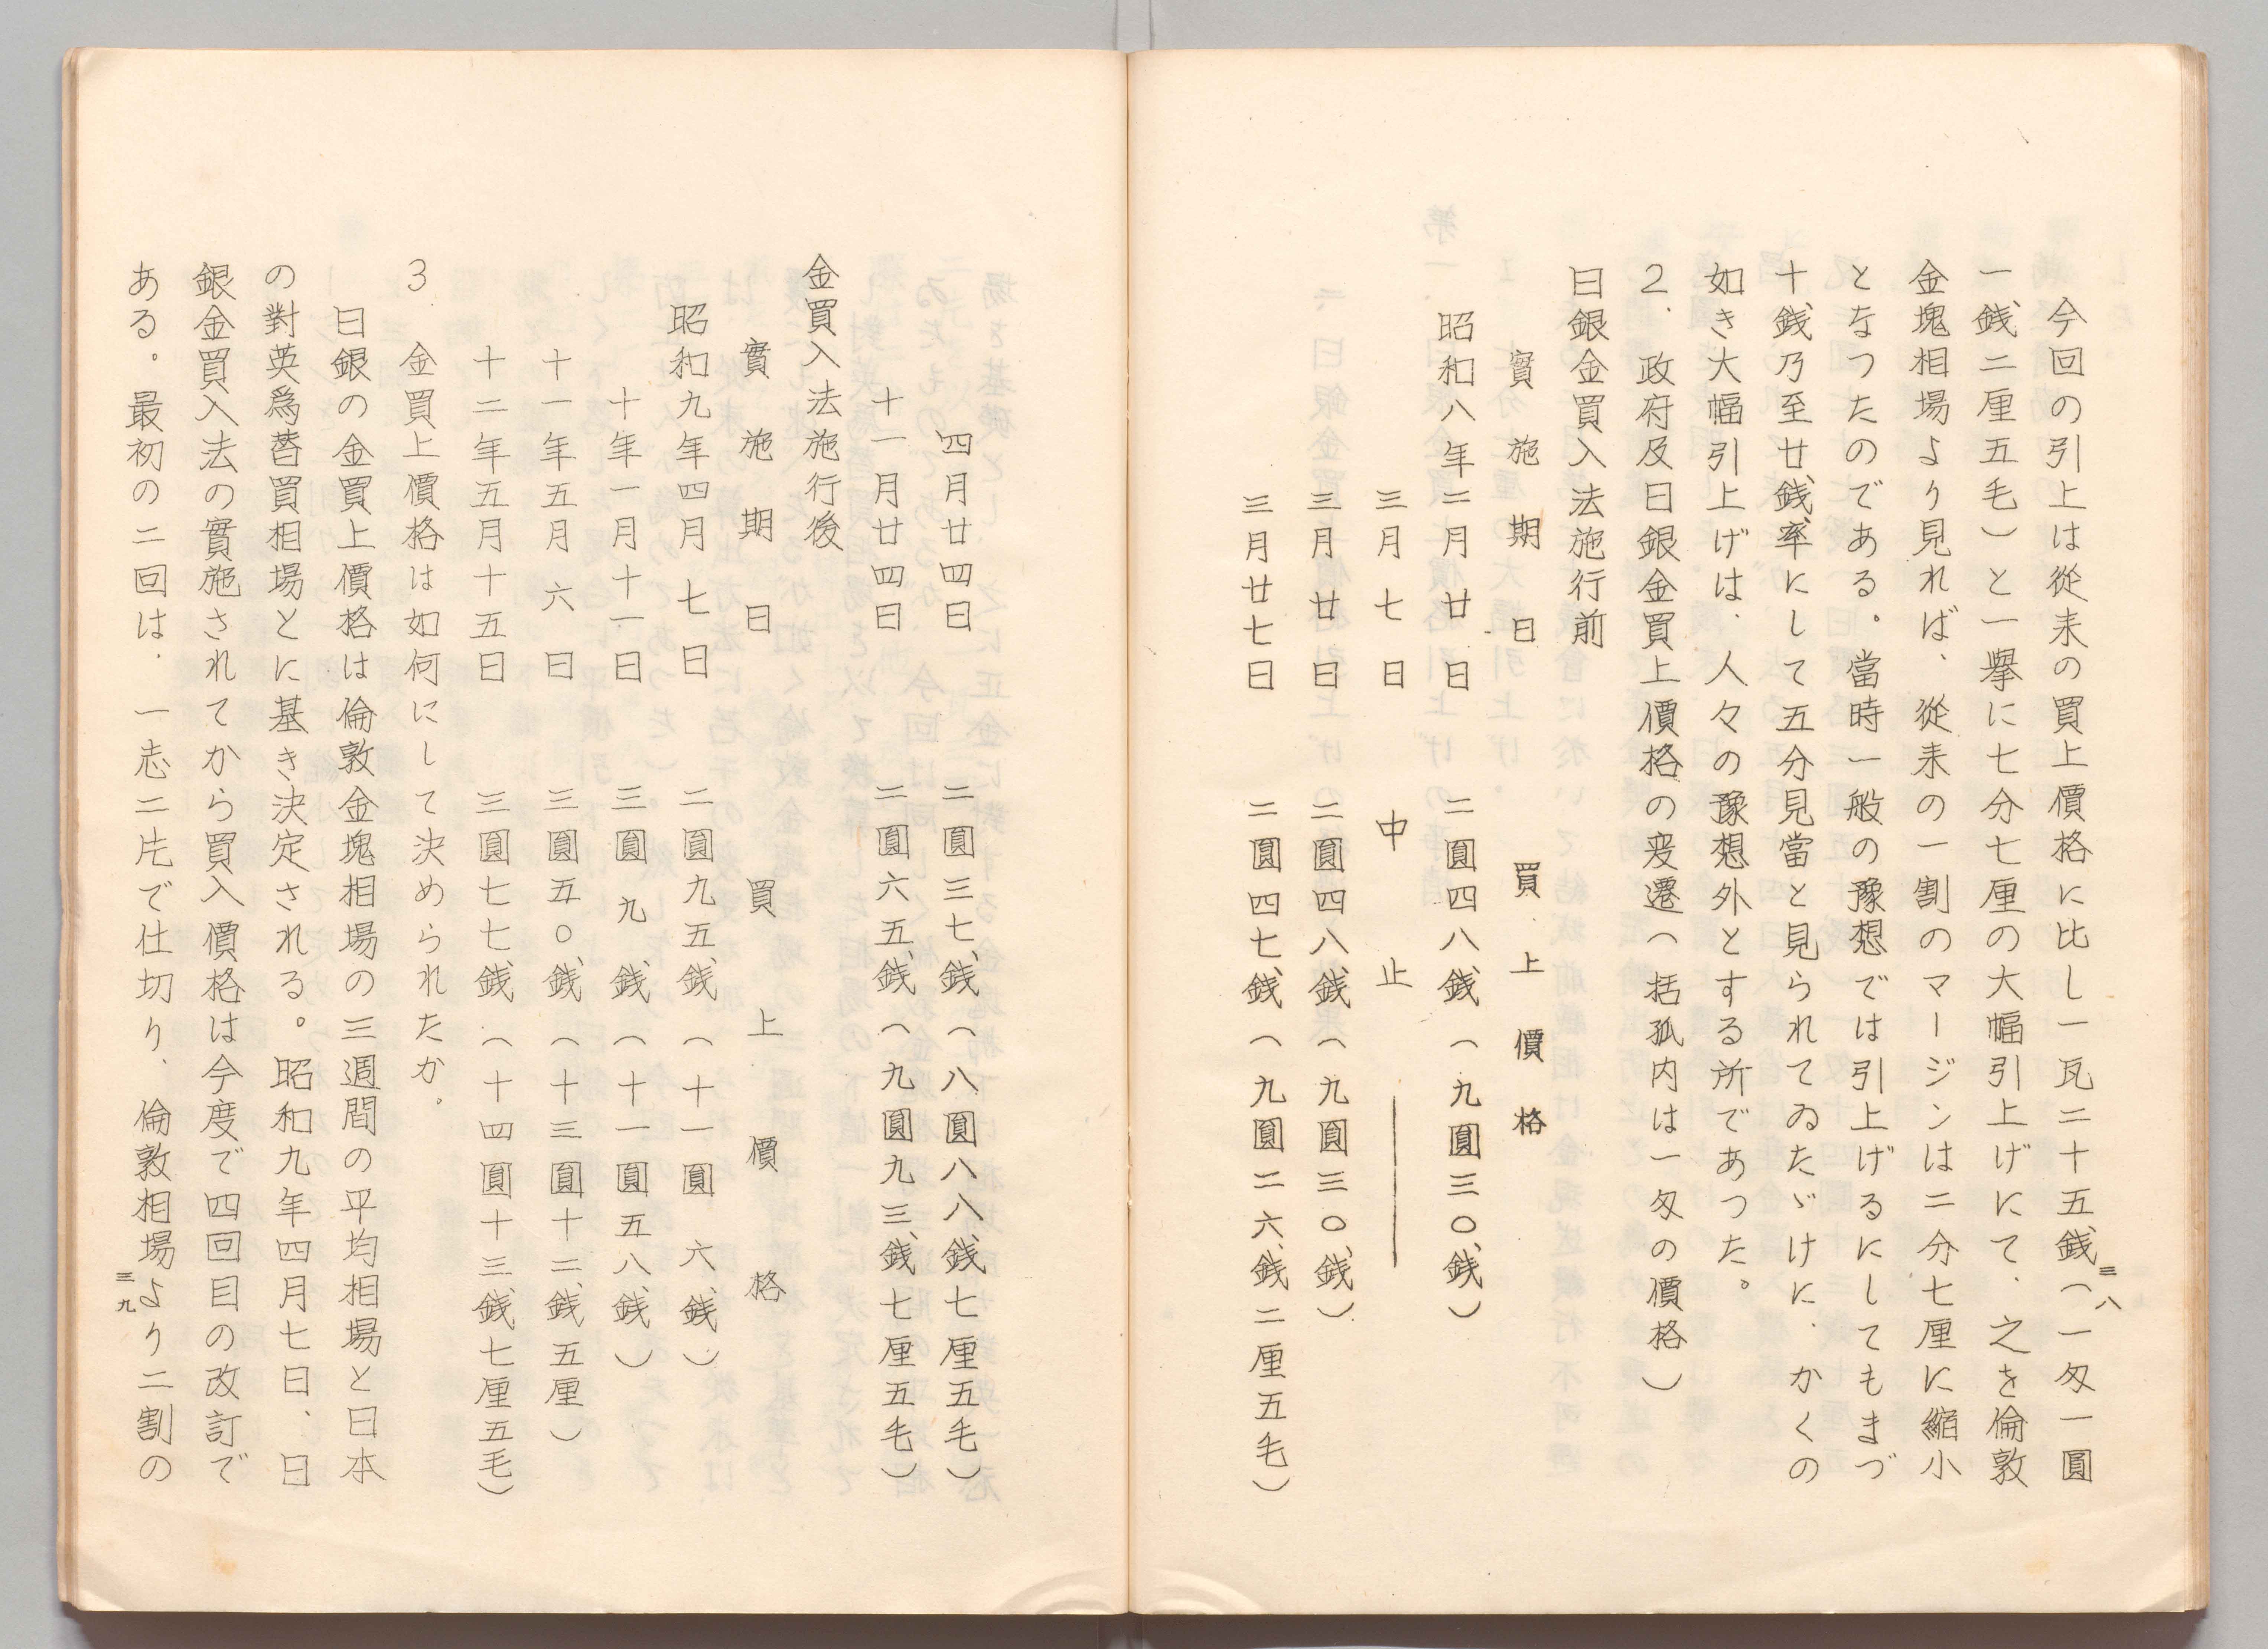 今回の引上は從来の買上價格に比し一瓦二十五銭(一匁一圓
一銭二厘五毛)と一擧に七分七厘の大幅引上げにて、之を倫敦
金塊相場より見れば、從来の一割のマージンは二分七厘に縮小
となつたのである。當時一般の豫想では引上げるにしてもまづ
十銭乃至廿銭、率にして五分見當と見られてゐたゞけに、かくの
如き大幅引上げは、人々の豫想外とする所であつた。
2. 政府及日銀金買上價格の変遷(括孤内は一匁の價格)
日銀金買入法施行前
實施期日 買上價格
昭和八年二月廿日 二圓四八銭(九圓三〇銭)
三月七日 中止――
三月廿日 二圓四八銭(九圓三〇銭)
三月廿七日 二圓四七銭(九圓二六銭二厘五毛)
三八
四月廿四日 二圓三七銭(八圓八八銭七厘五毛)
十一月廿四日 二圓六五銭(九圓九三銭七厘五毛)
金買入法施行後
實施期日 買上價格
昭和九年四月七日 二圓九五銭(十一圓六銭)
十年一月十一日 三圓九銭(十一圓五八銭)
十一年五月六日 三圓五〇銭(十三圓十二銭五厘)
十二年五月十五日 三圓七七銭(十四圓十三銭七厘五毛)
3 金買上價格は如何にして決められたか。
日銀の金買上價格は倫敦金塊相場の三週間の平均相場と日本
の對英爲替買相場とに基き決定される。昭和九年四月七日、日
銀金買入法の實施されてから買入價格は今度で四回目の改訂で
ある。最初の二回は、一志二片で仕切り、倫敦相場より二割の
三九